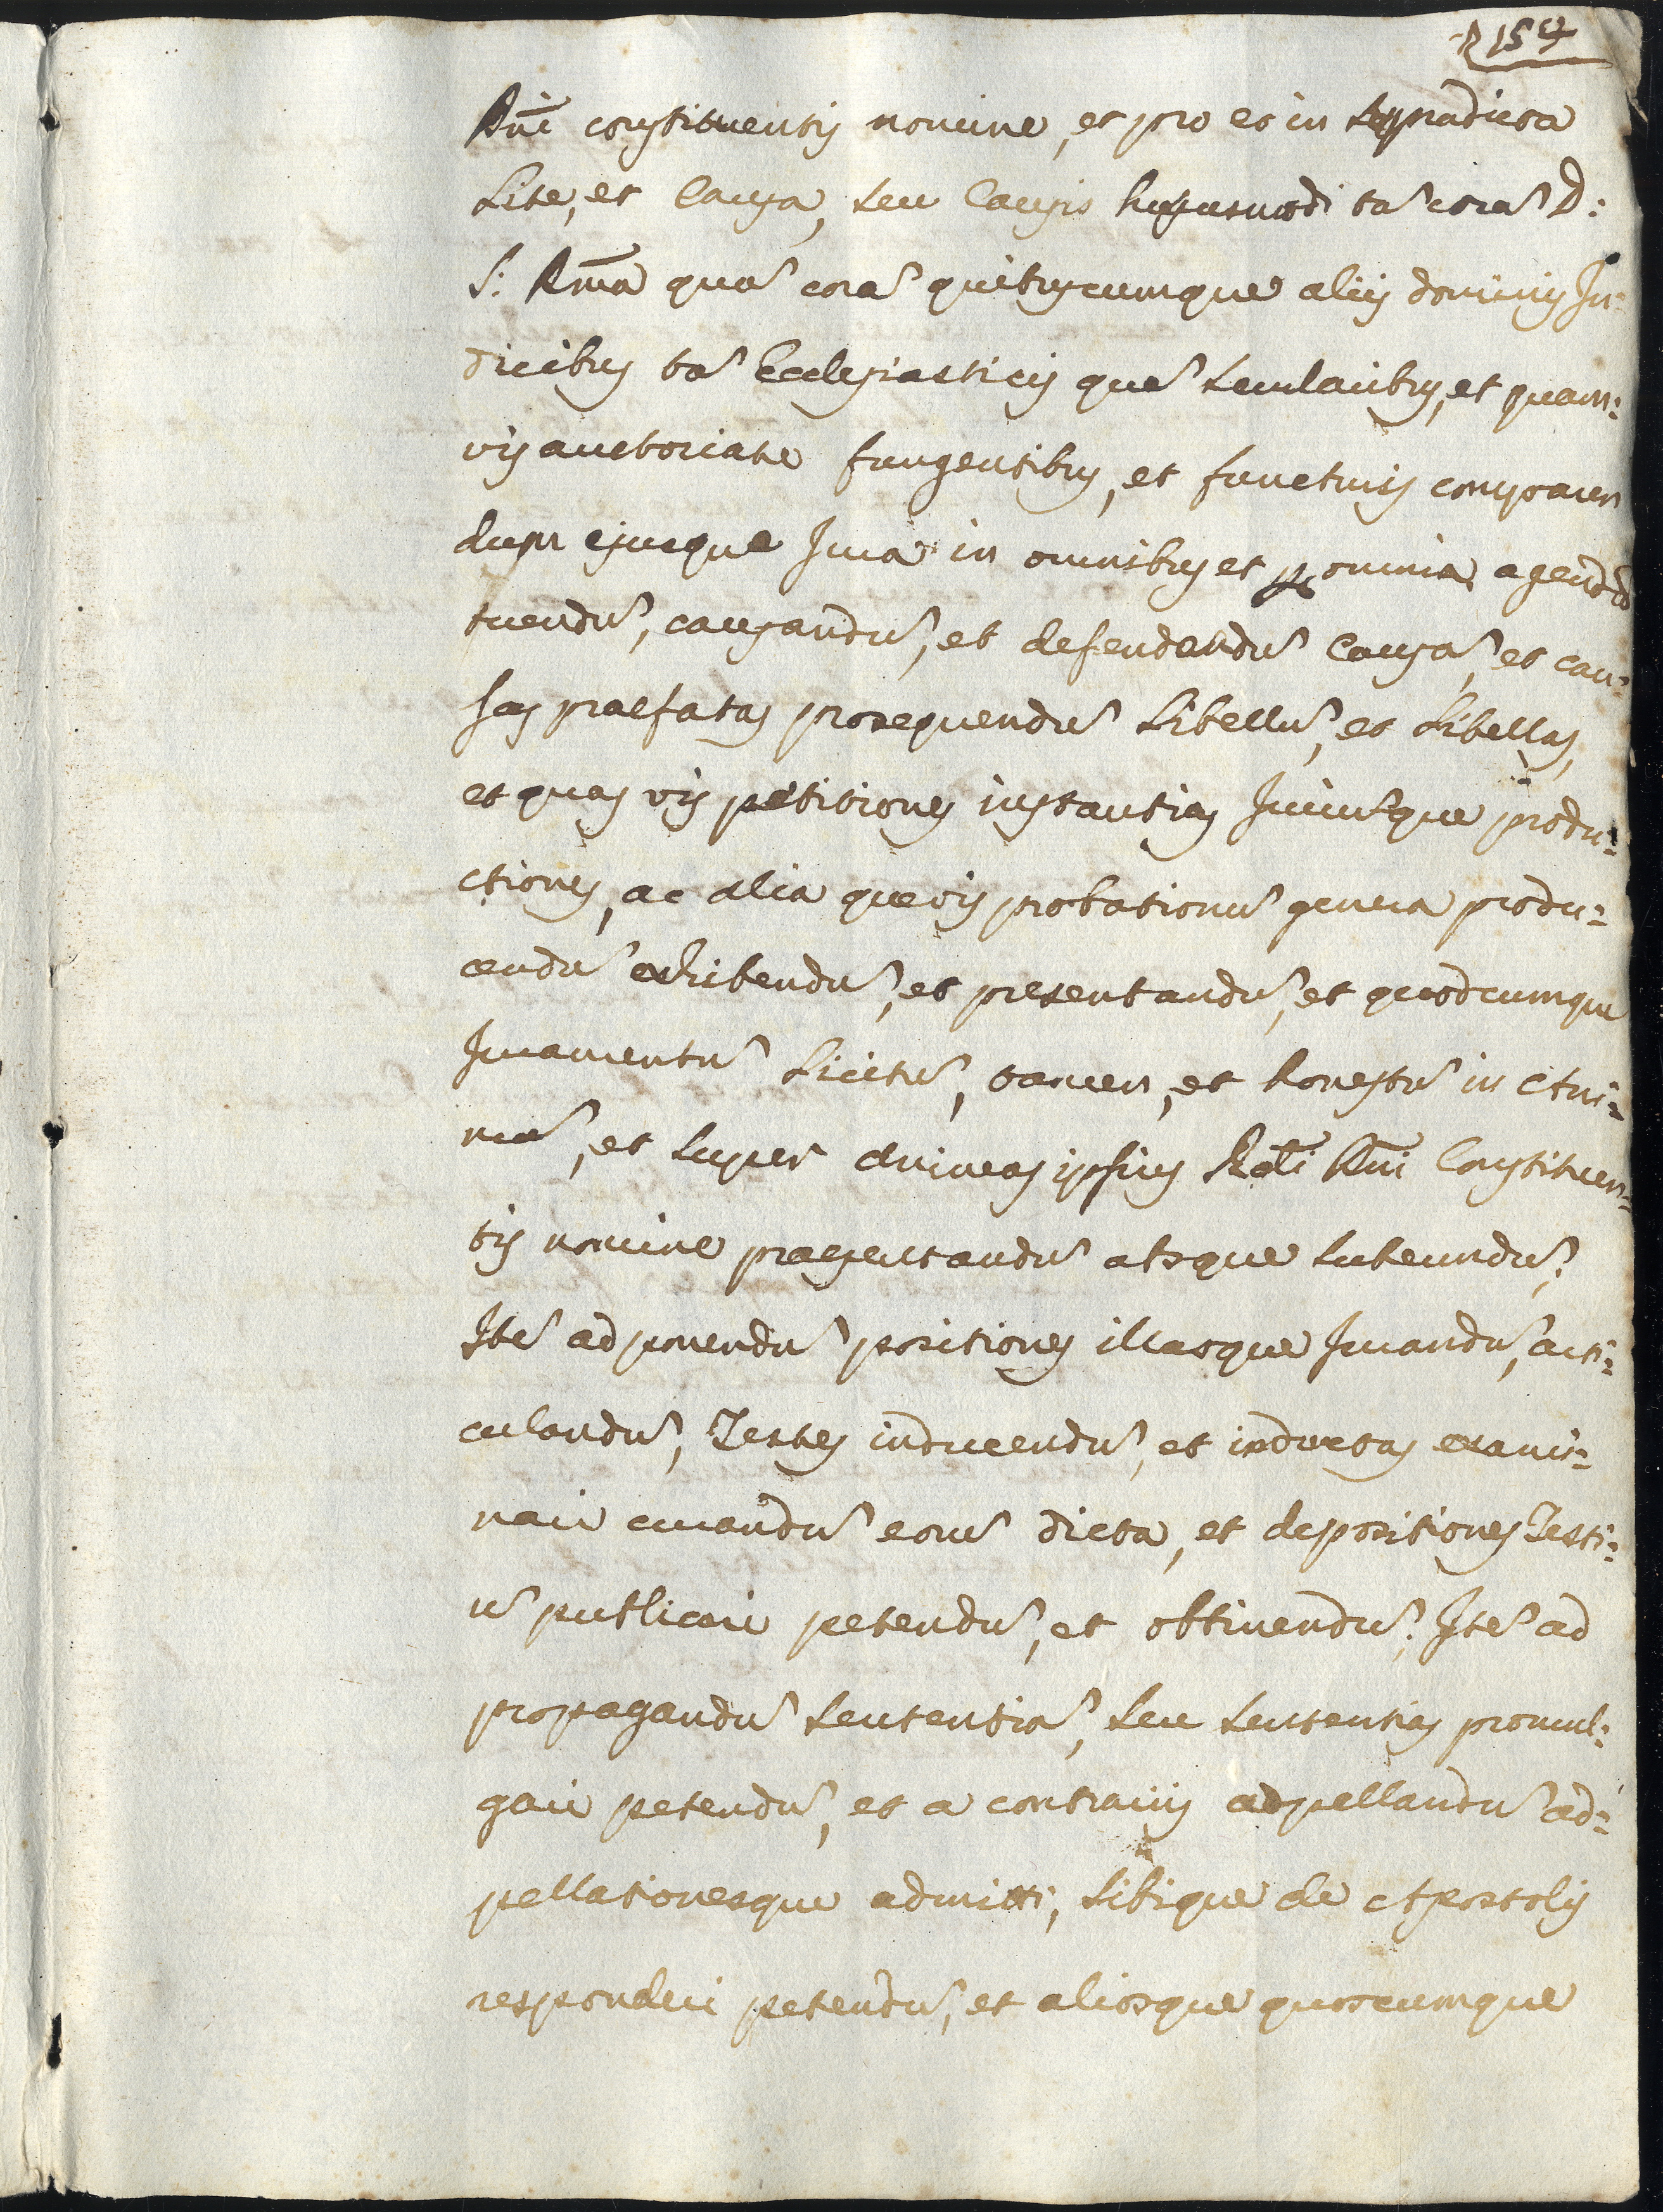 Dni constituentis nomine, et pro eo in suppradicta
Lite, et Causa, seu Causis hujusmodi ta᷉ cora᷉ D:
S: Rm̄a qua᷉ cora᷉ quibuscumque aliis dominis Ju=
dicibus ta᷉ Ecclesiasticis qua᷉ secularibus, et quam=
vis auctoriate fungentibus, et functuris comparen
dum ejusque Jura in omnibus et p omnia agendu᷉
tuendu᷉, causandu᷉, et defendendu᷉ Causa᷉, et cau=
sas praefatas prosequendu᷉ Libellu᷉, et Libellos,
et quas vis petitiones instantias Juriusque produ=
ctiones, ac alia quevis probationu᷉ genera produ=
cendu᷉ exhibendu᷉, et presentandu᷉, et quodcumque
Juramentu᷉ Licitu᷉, tamen, et honestu᷉ in Ani=
ma᷉, et super animas ipsius Dni Constituen=
tis nomine praesentandu᷉ atque subeundu᷉;
Ite᷉ ad ponendu᷉ positiones illasque Jurandu᷉, arti=
culandu᷉, Testes inducendu᷉, et inductos exami=
nari curandu᷉ eoru᷉ dicta, et depositiones Testi=
u᷉ publicari petendu᷉, et obtinendu᷉; Ite᷉ ad
propagandu᷉ sententia᷉, seu sententias promul=
gari petendu᷉, et a contrariis adpellandu᷉ ad=
pellationesque admitti, sibique de Apostolis
responderi petendu᷉, et aliosque quoscumque